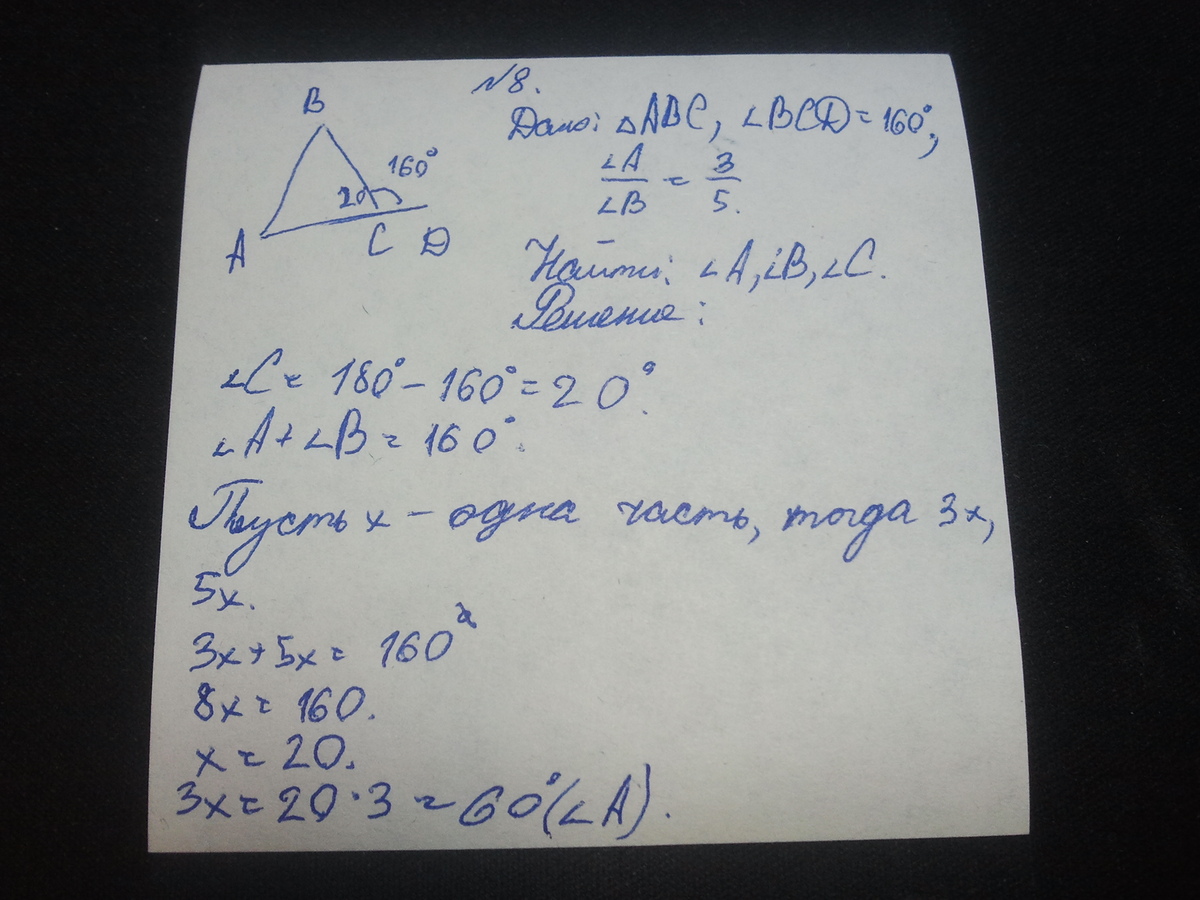 №8.
B
160°
20
A
C D
Дано: △ABC, ∠BCD = 160°,
∠A/∠B = 3/5.
Найти: ∠A, ∠B, ∠C.
Решение:
∠C = 180° - 160° = 20°.
∠A + ∠B = 160°.
Пусть x - одна часть, тогда 3x,
5x.
3x + 5x = 160
8x = 160.
x = 20.
3x = 20 · 3 = 60° (∠A).